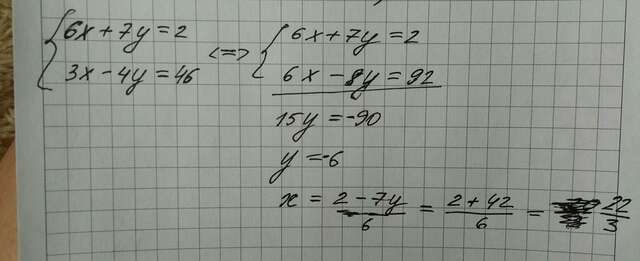 { 6x+7y=2
3x-4y=46 <=> { 6x+7y=2
6x-8y=92
15y=-90
y=-6
x = (2-7y)/6 = (2+42)/6 = 22/3